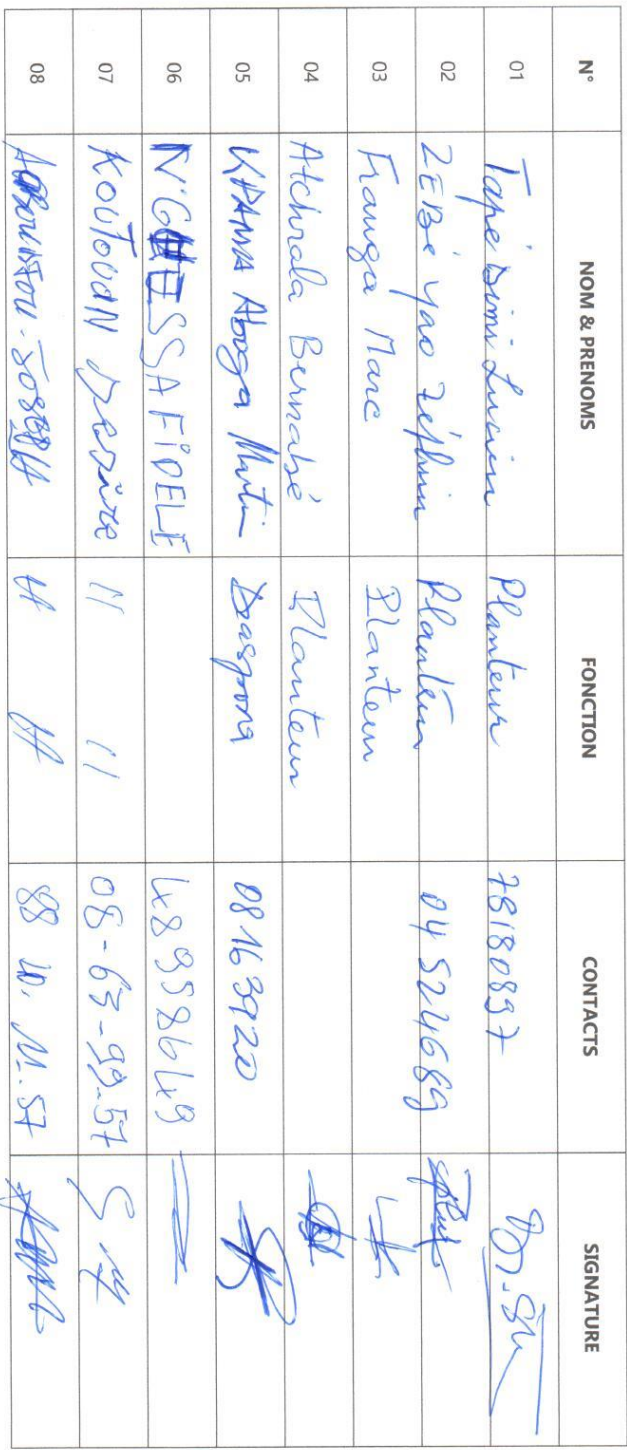 N° NOM & PRENOMS FONCTION CONTACTS SIGNATURE
01 Tapé Dimi Lucien Planteur 78180897
02 ZEBé Yao Zéphirin Planteur 04524689
03 Franga Marc Planteur
04 Atchirala Bernabé Planteur
05 KPAMA Aboga Martin Diaspora 08163920
06 N'GUESSA FIDELE 48958649
07 KOUTOUAN Désiré 11 11 08-63-99-57
08 JOSEPH 11 11 88 57